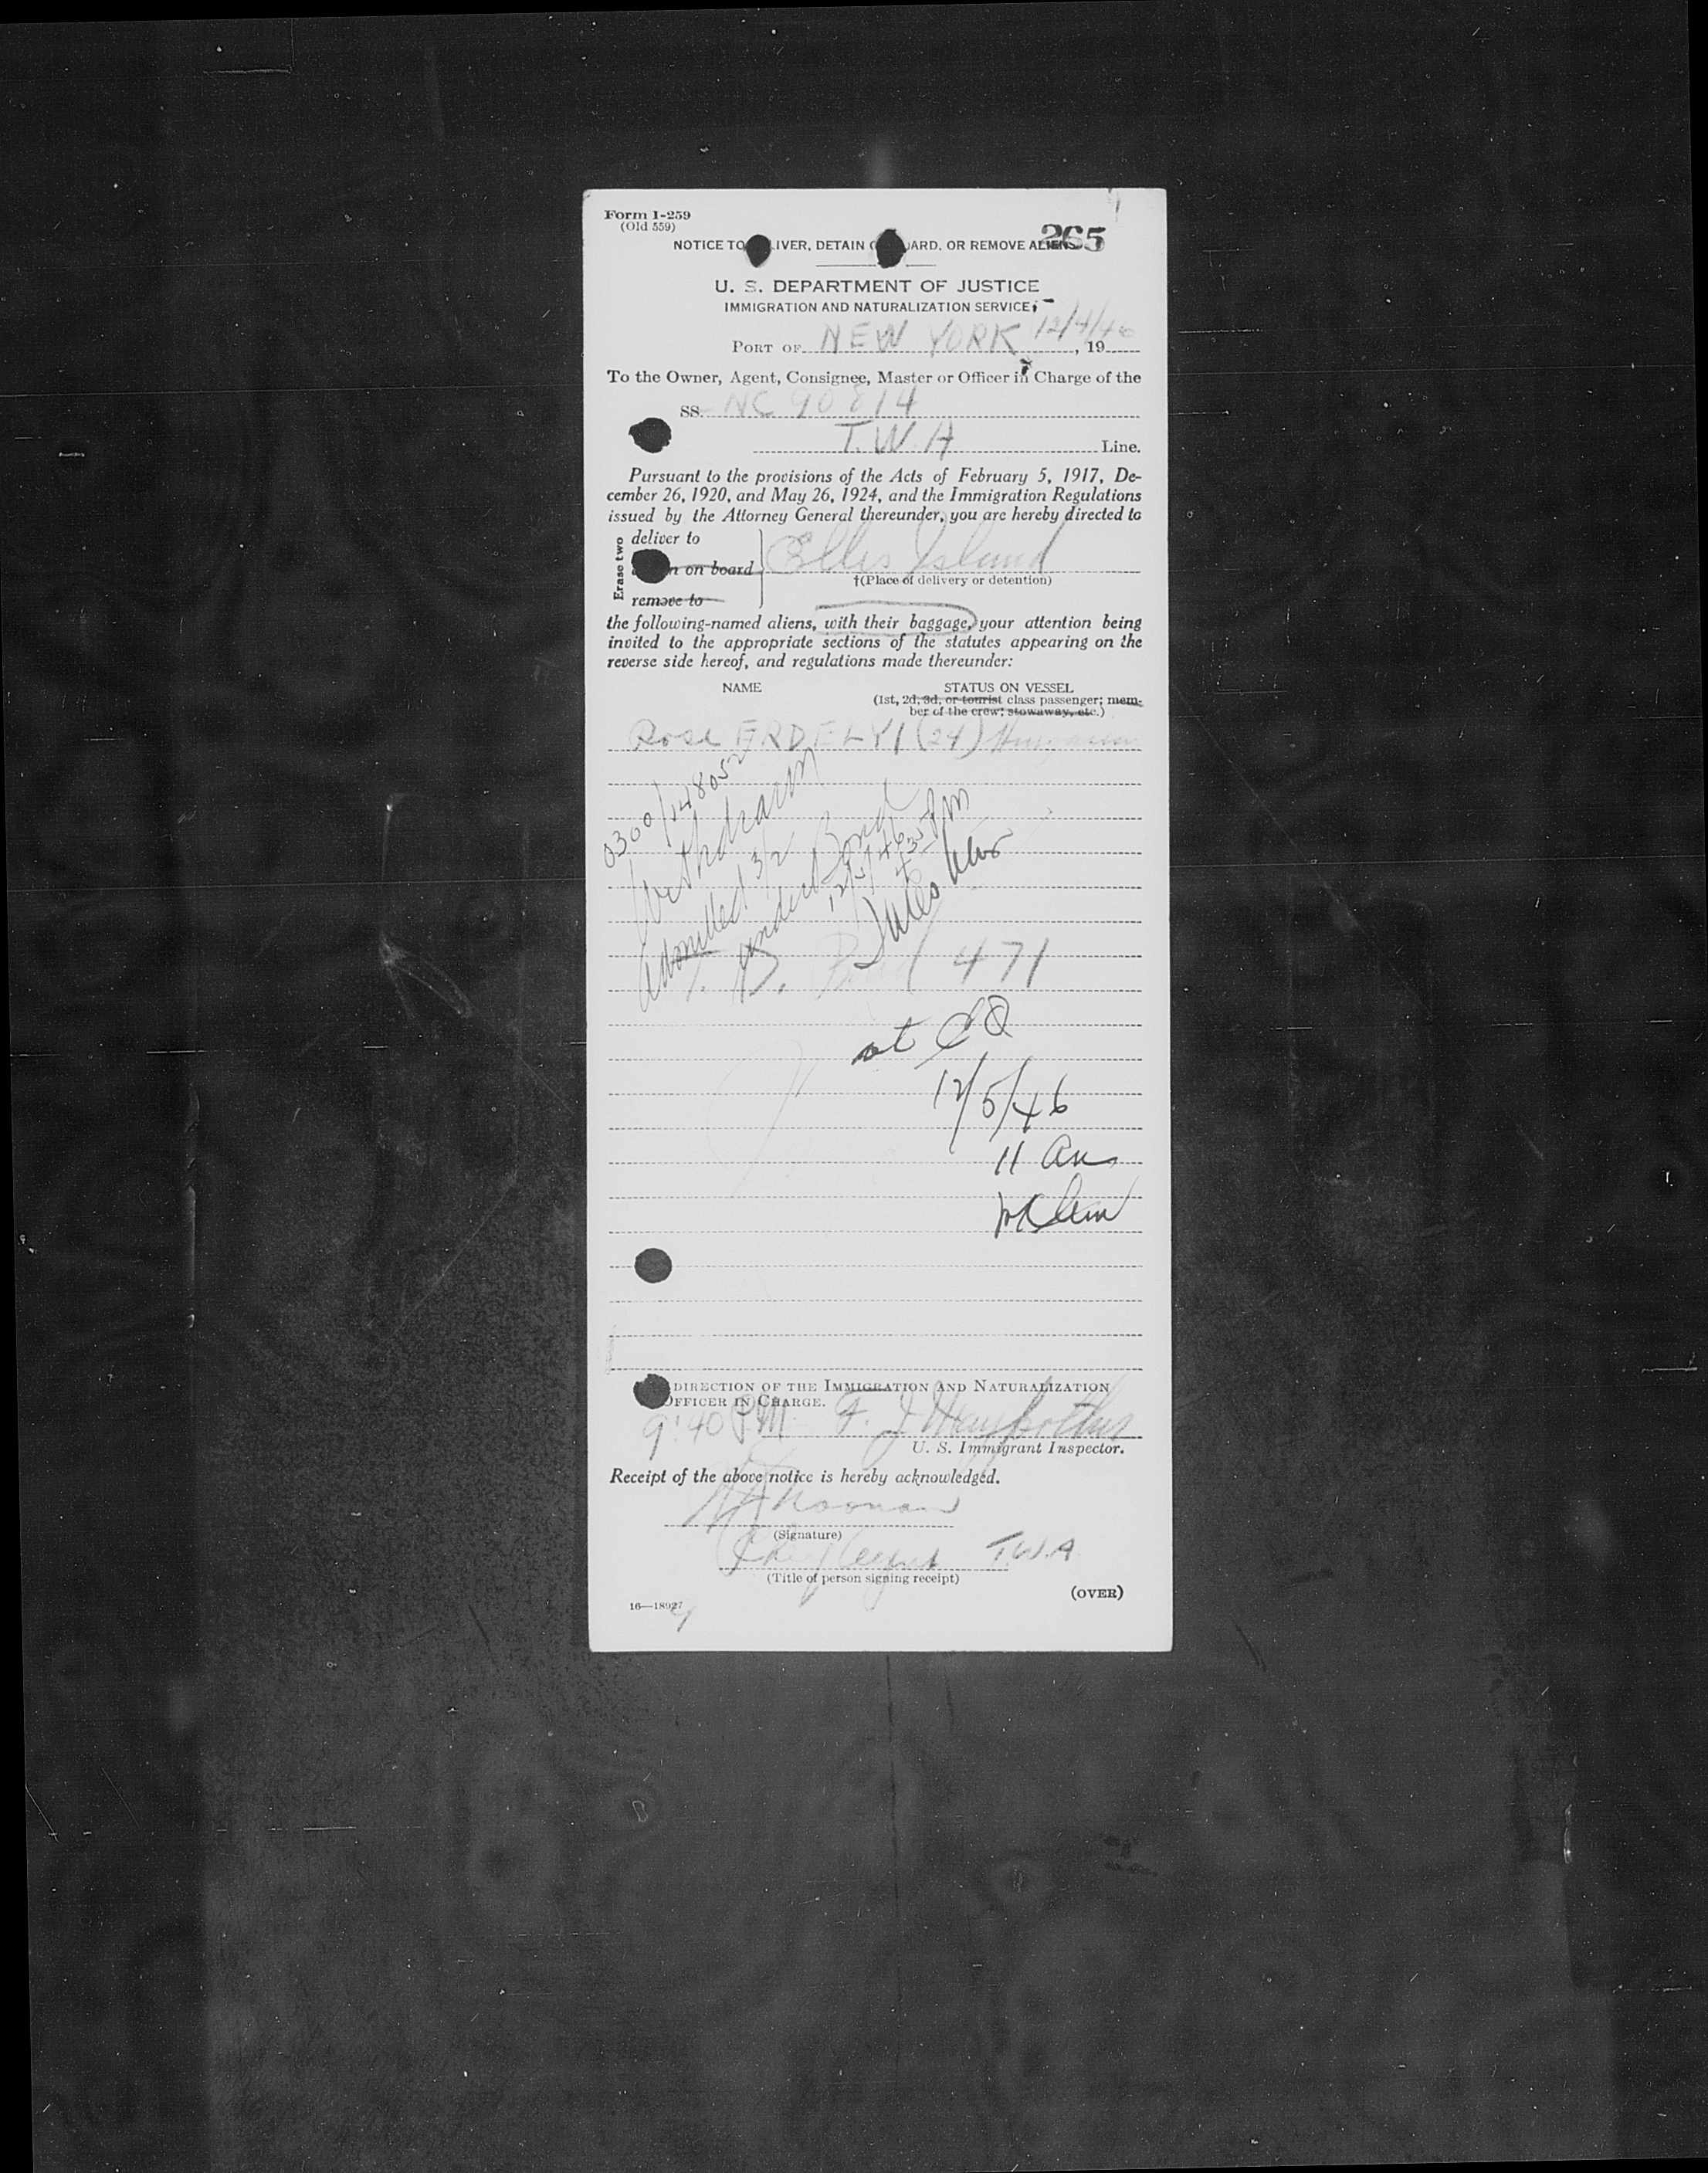 Form I-259
(Old 559)
265
NOTICE TO IVER, DETAIN ARD, OR REMOVE ALIENS
U. S. DEPARTMENT OF JUSTICE
IMMIGRATION AND NATURALIZATION SERVICE
PORT OF NEW YORK 12/4/46, 19
To the Owner, Agent, Consignee, Master or Officer in Charge of the
SS. NC 90814
T.W.A Line.
Pursuant to the provisions of the Acts of February 5, 1917, De-
cember 26, 1920, and May 26, 1924, and the Immigration Regulations
issued by the Attorney General thereunder, you are hereby directed to
Erase two
deliver to
n on board
remove to
Ellis Island
†(Place of delivery or detention)
the following-named aliens, with their baggage, your attention being
invited to the appropriate sections of the statutes appearing on the
reverse side hereof, and regulations made thereunder:
NAME STATUS ON VESSEL
(1st, 2d, 3d, or tourist class passenger; mem-
ber of the crew; stowaway, etc.)
Rose ERDELYI (24)
0300/148052
Withdrawn
Admitted 3/2
under Bond
12/5/46
4 35 PM
471
at
12/5/46
11 am
DIRECTION OF THE IMMIGRATION AND NATURALIZATION
OFFICER IN CHARGE.
9:40 PM F. J.
U. S. Immigrant Inspector.
Receipt of the above notice is hereby acknowledged.
Noonan
(Signature)
Agent T.W.A
(Title of person signing receipt)
(OVER)
16—18927